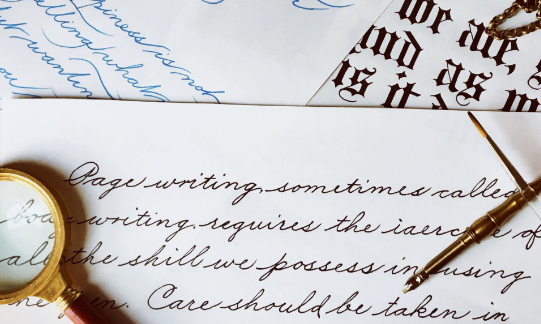 piness is not
elling what
t wantin
you
we are,
and as
is it
Page writing, sometimes called
writing, requires the of
the skill we possess in using
Care should be taken in